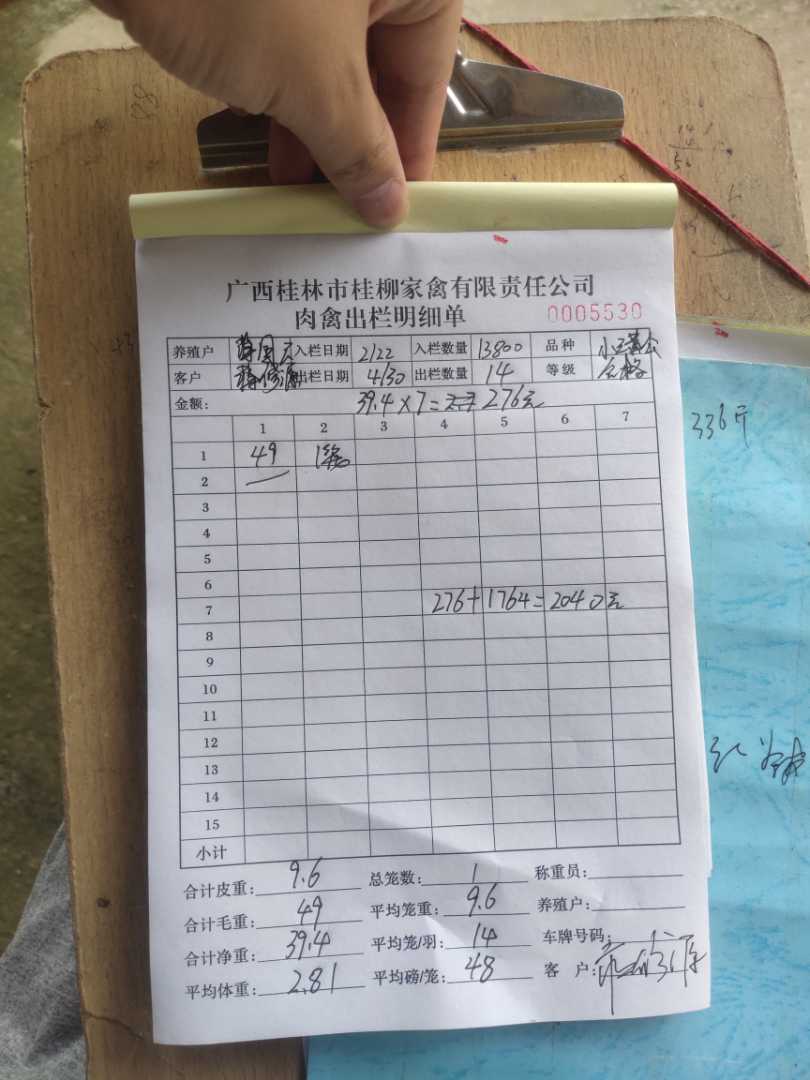 广西桂林市桂柳家禽有限责任公司
肉禽出栏明细单
0005530
养殖户 入栏日期 2/22 入栏数量 13800 品种
客户 出栏日期 4/30 出栏数量 14 等级 合格
金额: 39.4×7= 276元
1 2 3 4 5 6 7
1 49
2
3
4
5
6
7 276+1764=2040元
8
9
10
11
12
13
14
15
小计
合计皮重: 9.6 总笼数: 1 称重员:
合计毛重: 49 平均笼重: 9.6 养殖户:
合计净重: 39.4 平均笼/羽: 14 车牌号码:
平均体重: 2.81 平均磅/笼: 48 客 户:
336斤